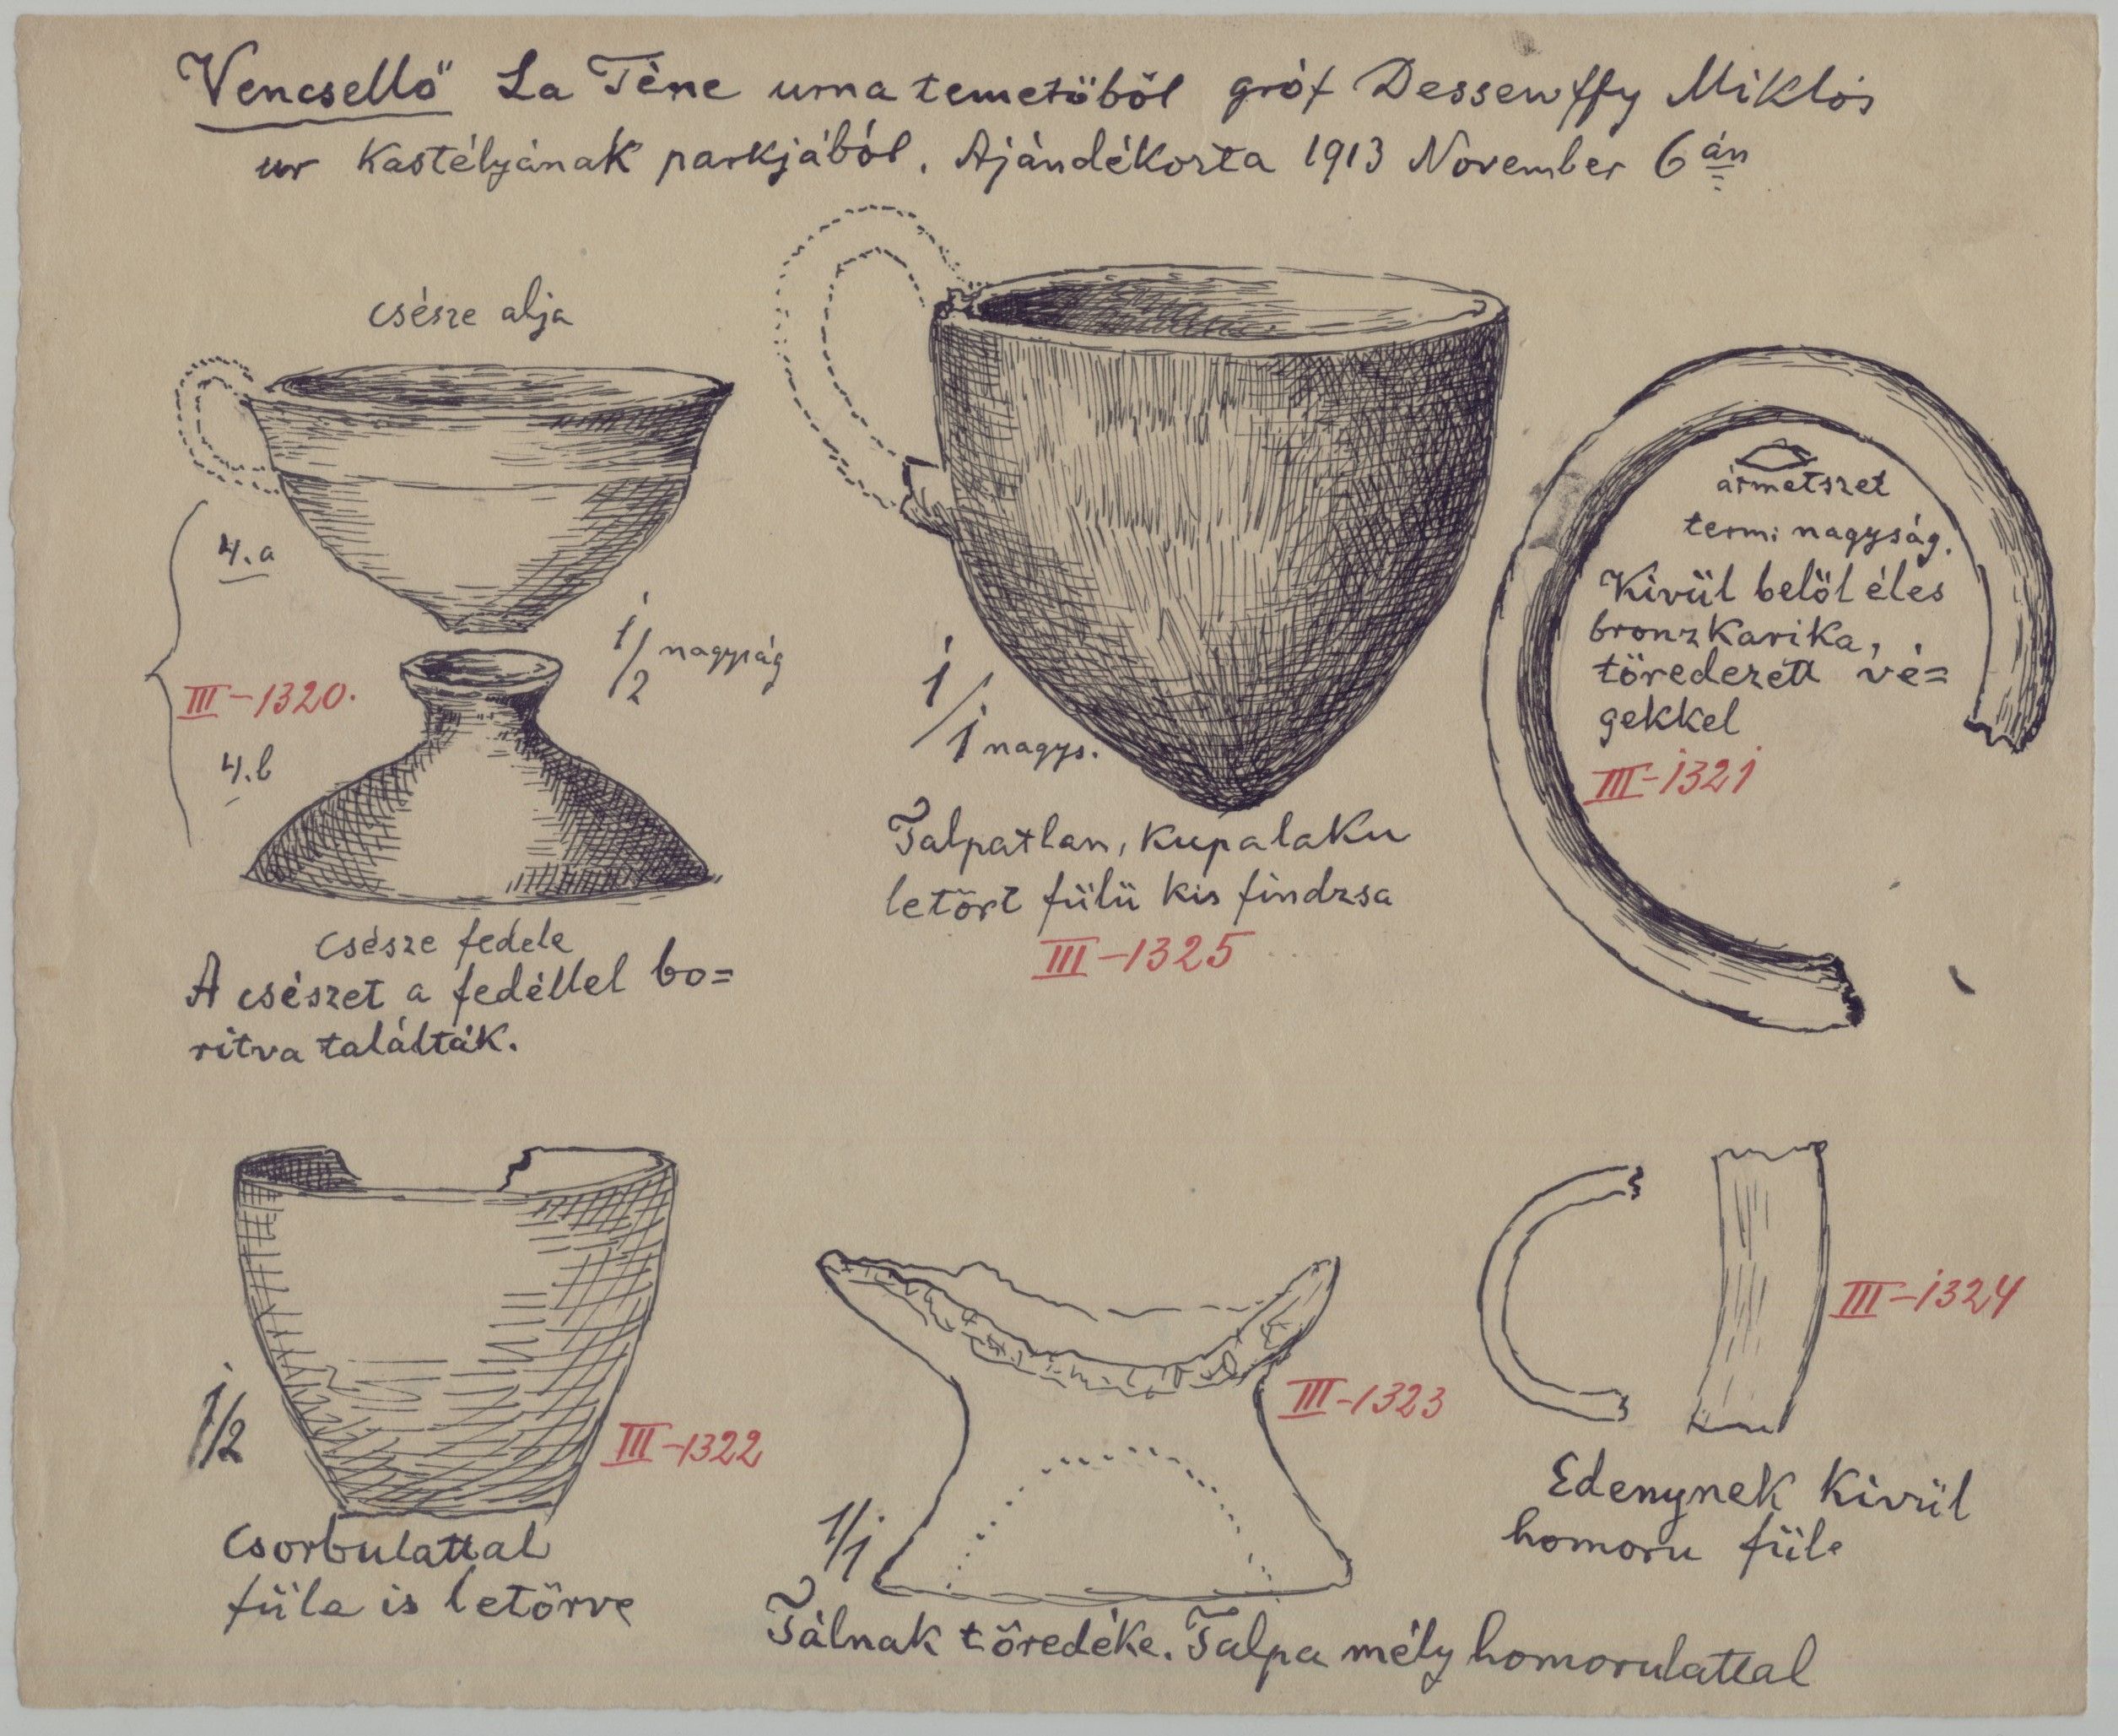 Vencsellő La Téne urna temetőből gróf Dessewffy Miklós
ur Kastélyának parkjából. Ajándékozta 1913 November 6 án
csésze alja
4.a
1/2 nagyság
III-1320.
4.b
csésze fedele
A csészet a fedéllel bo=
ritva találták.
1/1 nagys.
Talpatlan, Kupalaku
letört fülü kis findzsa
III-1325
ármetszet
term: nagyság.
Kivül belöl éles
bronz Karika,
töredezett vé=
gekkel
III-1321
1/2
III-1322
Csorbulattal
füle is letörve
III-1323
1/1
Tálnak töredéke. Talpa mély homorulattal
III-1324
Edenynek Kivül
homoru füle